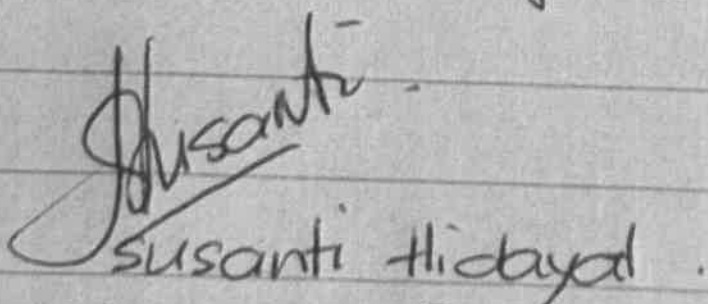 Susanti
Susanti Hidayat .